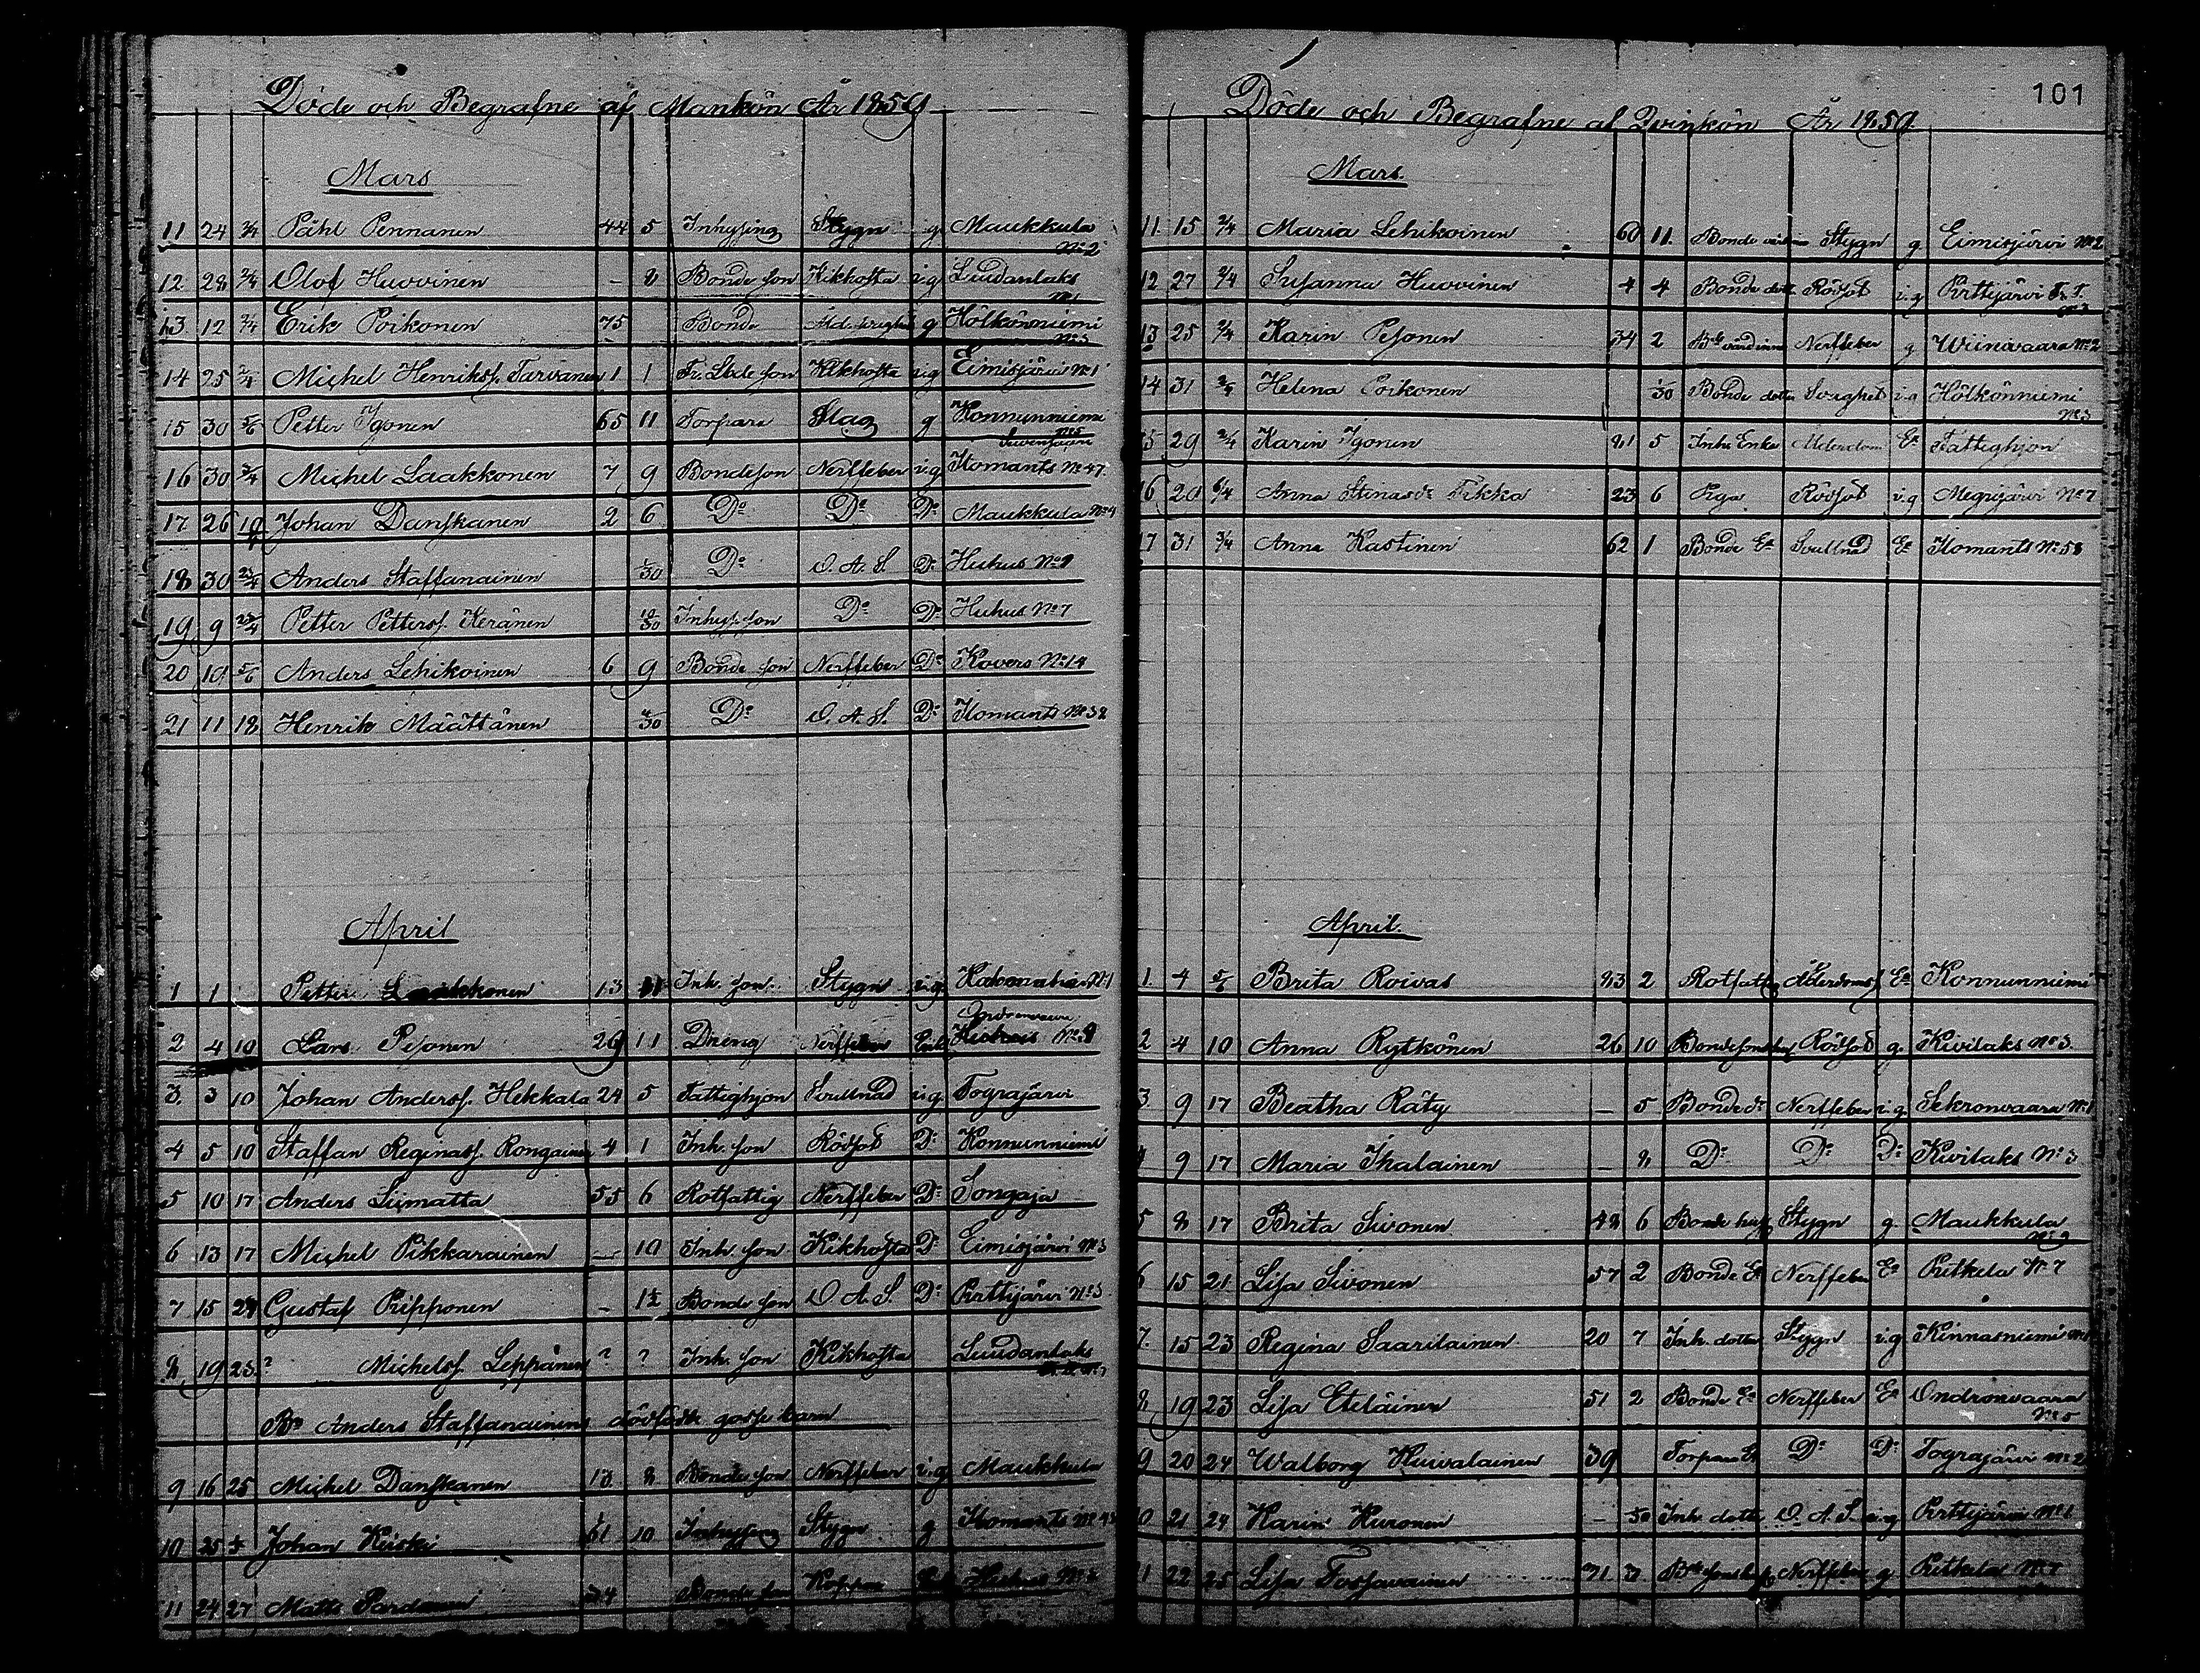 Döde och Begrafne af Mankön År 1859
Mars
11 24 3/4 Påhl Pennanen 44 5 Inhysing Stygn g. Maukkula No 2
12 28 Olof Huovinen – 8 Bonde son Kikhosta i.g Luudanlaks No 1
13 12 Erik Poikonen 75 Bonde g Hölkönniemi No 3
14 25 Michel Henrikss. Tarvanen 1 1 Kikhosta i.g Eimisjärvi No 1
15 30 5/6 Petter Igonen 65 11 Torpare Slag g Konnunniemi No 5
16 30 3/4 Michel Laakkonen 7 9 Bondeson Nerffeber i.g Ilomants No 47
17 26 10 Johan Danskanen 2 6 Do Do Do Maukkula No 4
18 30 Anders Staffanainen 1/30 Do O. A. S Do Huhus No 9
19 9 Petter Petterss. Keränen 10/30 Inhys. son Do Do Huhus No 7
20 19 5/6 Anders Lehikoinen 6 9 Bonde son Nerffeber Do Kovero No 14
21 11 18 Henrik Määttänen 4/30 Do O. A. S. Do Ilomants No 32
April
1 1 Petter Laakkonen 13 11 Inh. son. Stygn i.g.
2 4 10 Lars Pesonen 29 11 Dreng Nerffeber Huhus No 9
3. 3 10 Johan Anderss. Hekkala 24 5 Fattighjon i.g. Tograjärvi
4 5 10 Staffan Reginass. Rongainen 4 1 Inh. son Rödsot Do Konnunniemi
5 10 17 Anders Siimatta 55 6 Rotfattig Nerffeber Do Songaja
6 13 17 Michel Pikkarainen – 10 Inh. son Kikhosta Do Eimisjärvi No 3
7 15 24 Gustaf Pripponen – 1/2 Bonde son O A. S. Do Purttijärvi No 3
8 19 23. ? Michelss. Leppänen ? ? Inh. son Kikhosta Luudanlaks
Bo Anders Staffanainens dödfödde gosse barn
9 16 25 Michel Danskanen 13 8 Bonde son Nerffeber i.g Maukkula
10 25 Johan Kiiski 61 10 Inhysing Stygn g Ilomants No 43
11 24 27 Matts 34 Bonde son Huhus
101
Döde och Begrafne af Qvinkön År 1859.
Mars.
11. 15 2/4 Maria Lehikoinen 60 11. Bonde Stygn g Eimisjärvi No 2
12 27 2/4 Susanna Huovinen 4 4 Bonde dott Rödsot i.g Purttijärvi
13 25 2/4 Karin Pesonen 34 2 Bde värdinna Nerffeber g Wiinvaara No 2
14 31 Helena Poikonen 1/30 Bonde dotter i.g Hölkönniemi No 3
15 29 2/4 Karin Igonen 81 5 Inh. Enka Ålderdom Ea Fattighjon
16 20 6/4 Anna Stinasdr Tikka 23 6 Piga Rödsot i.g Megrijärvi No 7
17 31 3/4 Anna Kastinen 62 1 Bonde Ea Svullnad Ea Ilomants No 58
April.
1. 4 5/6 Brita Roivas 83 2 Rotfattig Ålderdoms. Ea Konnunniemi
2 4 10 Anna Rytkönen 26 10 Rödsot g. Kivilaks No 3
3 9 17 Beatha Räty – 5 Bonde dr Nerffeber i.g Sekronvaara No 1
4 9 17 Maria Ikalainen – 8 Do Do Do Kivilaks No 3
5 8 17 Brita Sivonen 48 6 Bonde hust Stygn g. Maukkula No 9
6 15 21 Lisa Sivonen 57 2 Bonde Ea Nerffeber Ea Putkela No 7
7. 15 23 Regina Saarilainen 20 7 Inh. dotter Stygn i.g Kinnasniemi
8 19 23 Lisa Eteläinen 51 2 Bonde Ea Nerffeber Ea Ondronvaara No 5
9 20 24 Walborg Huivalainen 39 Torpare Ea Do Do Tograjärvi No 2
10 21 24 Karin Kuronen – Inh. dotter O. A. S i.g Purttijärvi No 1
11 22 25 Lisa Tossavainen 71 Nerffeber g Putkela No 7